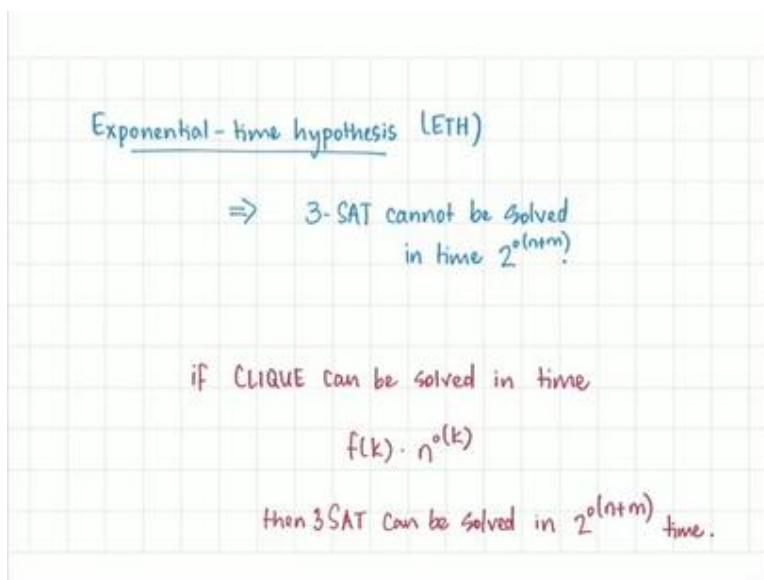 Exponential-time hypothesis (ETH)
⇒ 3-SAT cannot be solved
in time 2^o(n+m).
if CLIQUE can be solved in time
f(k) · n^o(k)
then 3SAT can be solved in 2^o(n+m) time.